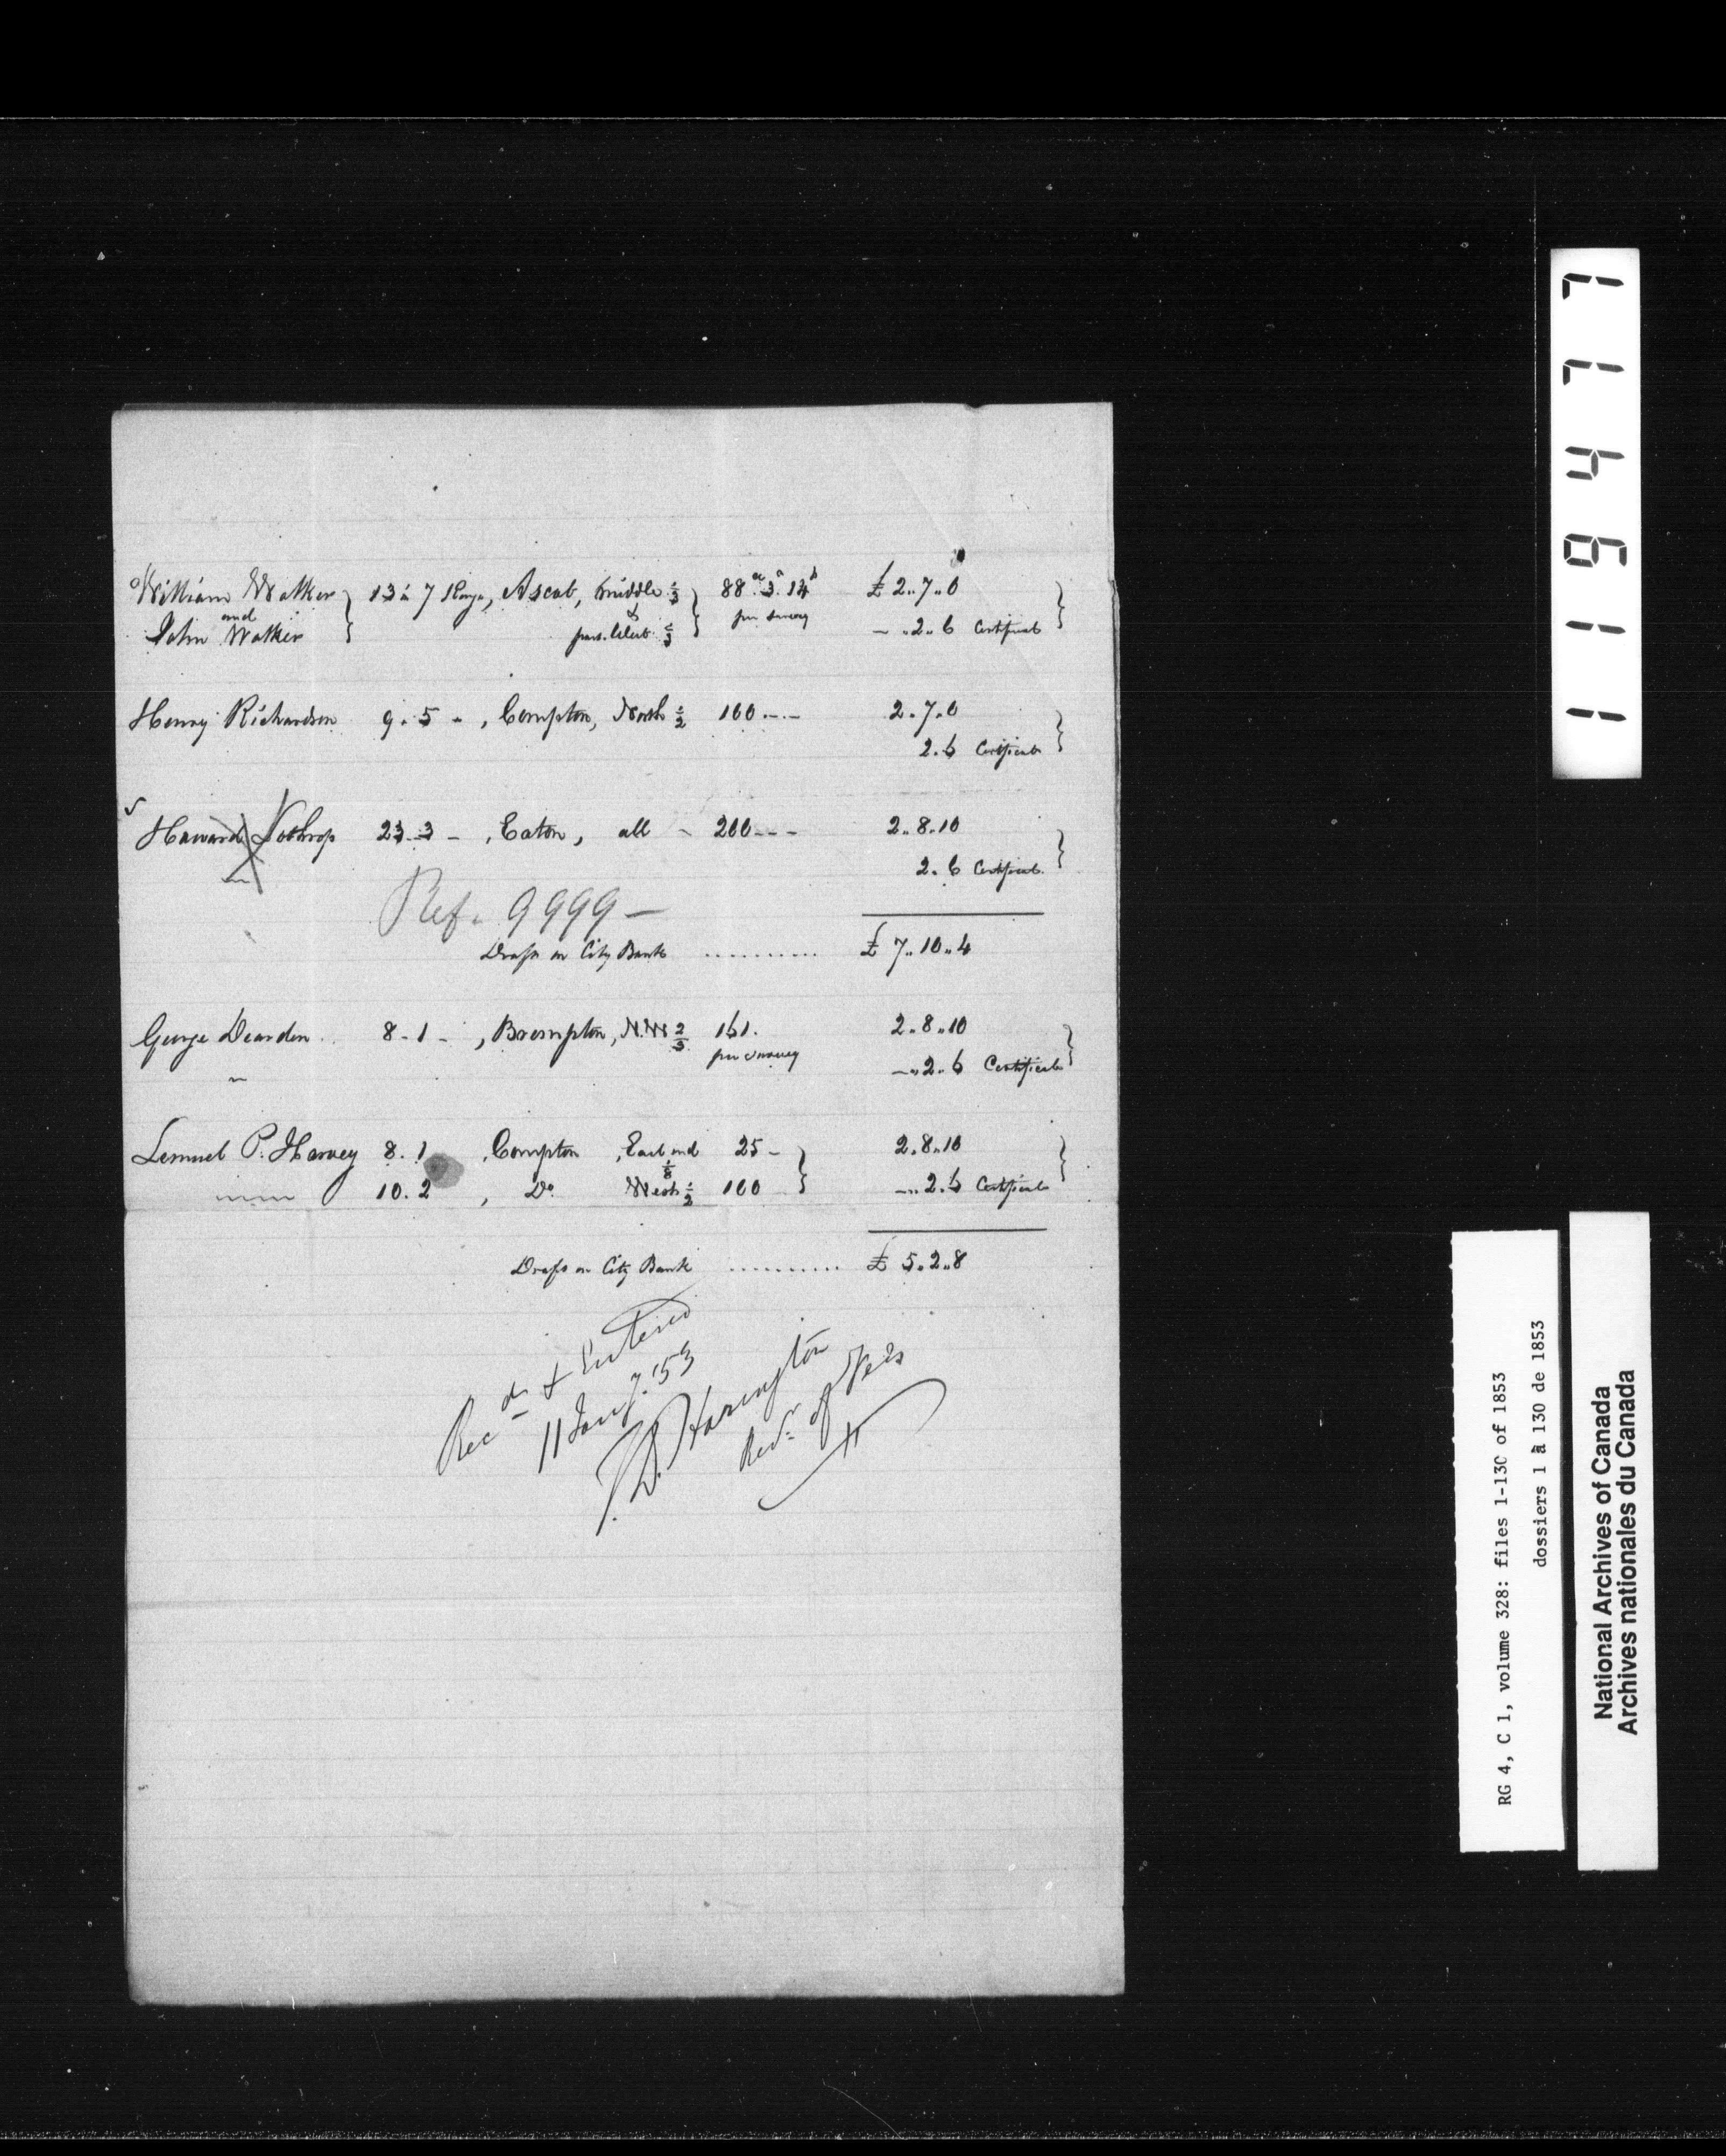 William Walker 13 in 7 Range, Ascot, middle 1/3 88.a 3.r 14.p £ 2..7..0
and & per survey
John Walker part West 1/3 — ..2..6 Certificate
Henry Richardson 9 . 5 - , Compton, North 1/2 100 --- 2..7..0
2..6 Certificate
Haward Lothrop 23 . 3 - , Eaton, all - 200 --- 2..8..10
2..6 Certificate
Ref. 9999 —
Draft on City Bank .......... £ 7..10..4
George Dearden 8 . 1 - , Brompton, N.W 2/3 161. 2..8..10
per survey —..2..6 Certificate
Lemuel P. Harvey 8 . 1 , Compton , East end 1/8 25 - 2..8..10
10 . 2 , Do West 1/2 100 —..2..6 Certificate
Draft on City Bank .......... £ 5..2..8
Recd & Entered
11 Jany '53
J.D. Harington
Recr of Fees
119477
RG 4, C 1, volume 328: files 1-130 of 1853
dossiers 1 à 130 de 1853
National Archives of Canada
Archives nationales du Canada